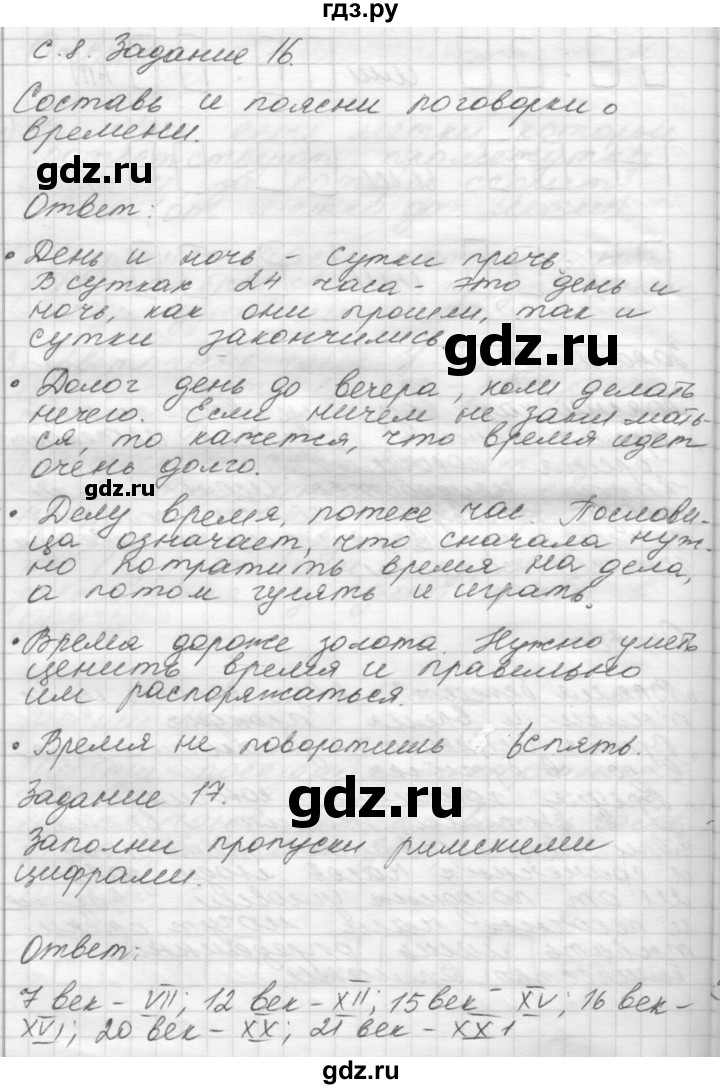 гдз.ру
с. 8. Задание 16.
Составь и поясни поговорки о
времени.
gdz.ru
Ответ:
• День и ночь - сутки прочь.
В сутках 24 часа - это день и
ночь, как они прошли, так и
сутки закончились.
gdz.ru
• Долог день до вечера, коли делать
нечего. Если ничем не занимать-
ся, то кажется, что время идет
очень долго.
gdz.ru
• Делу время, потехе час. Послови-
ца означает, что сначала нуж-
но потратить время на дела,
а потом гулять и играть.
• Время дороже золота. Нужно уметь
ценить время и правельно
им распоряжаться.
• Время не поворотишь вспять.
Задание 17.
gdz.ru
Заполни пропуски римскими
цифрами.
Ответ:
7 век - VII; 12 век - XII; 15 век - XV; 16 век -
XVI; 20 век - XX; 21 век - XX1
gdz.ru